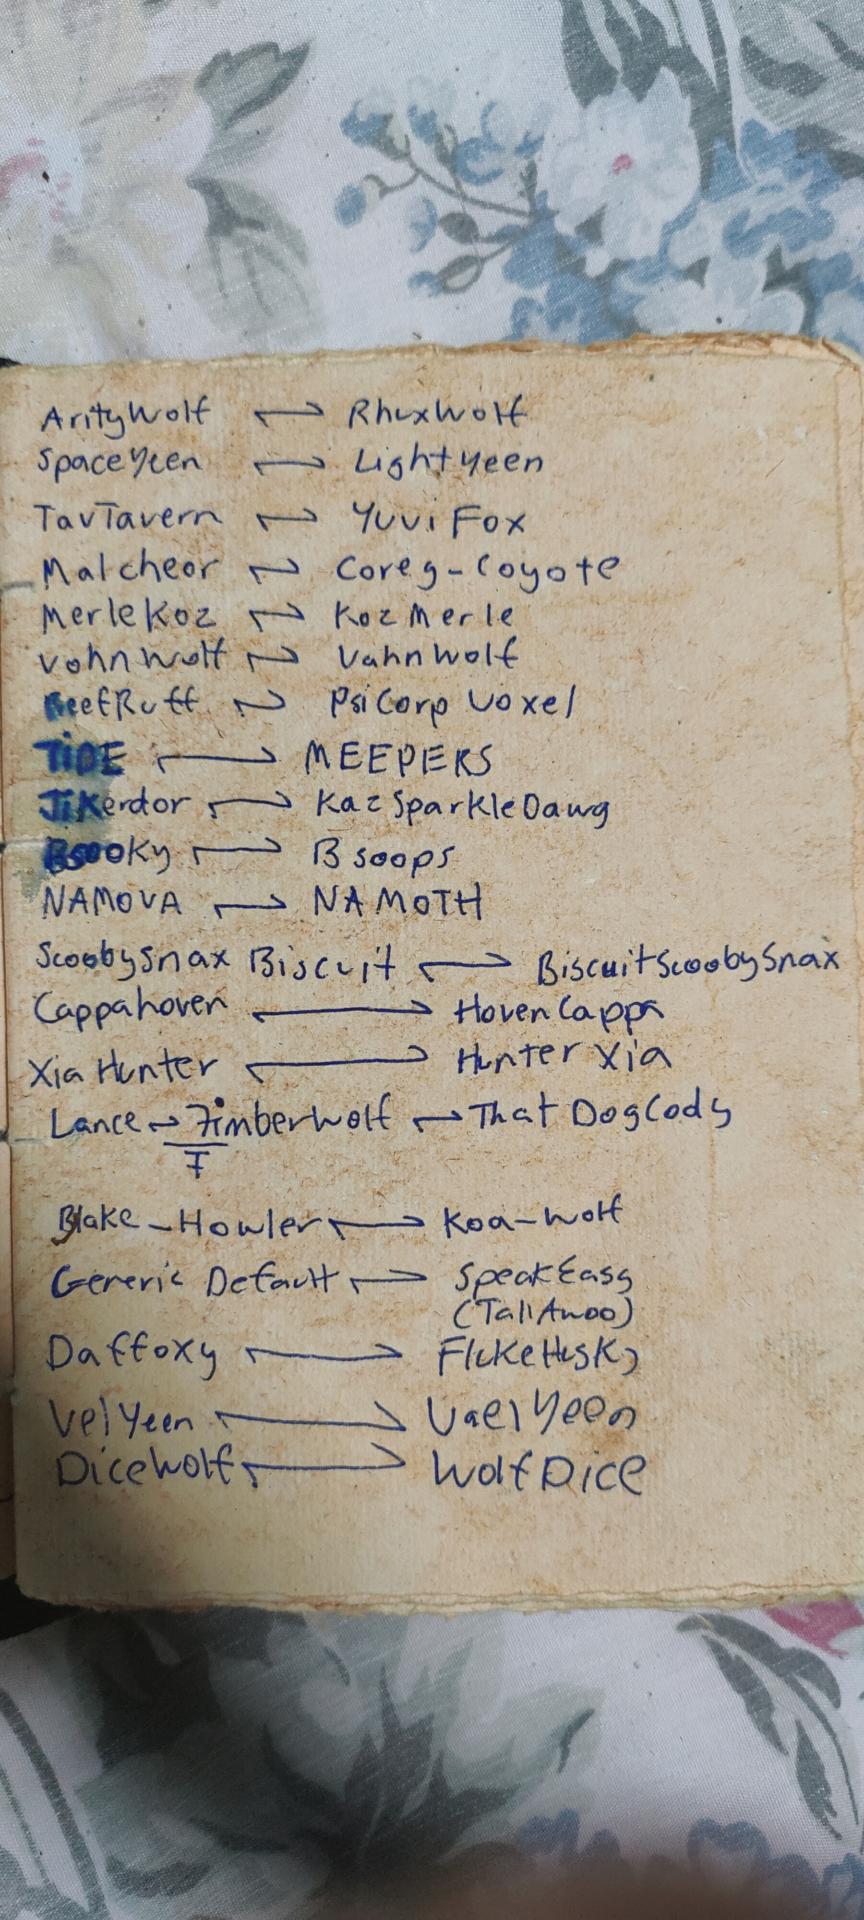 ArityWolf ↔ RhuxWolf
SpaceYeen ↔ LightYeen
TavTavern ↔ Yuvi Fox
Malcheor ↔ Coreg-Coyote
MerleKoz ↔ KozMerle
VohnWolf ↔ VahnWolf
BeefRuff ↔ PsiCorp Voxel
TiDE ↔ MEEPERS
JiKerdor ↔ KazSparkleDawg
Bsooky ↔ Bsoops
NAMOVA ↔ NAMOTH
ScoobySnax Biscuit ↔ BiscuitScoobySnax
Cappahoven ↔ HovenCappa
Xia Hunter ↔ Hunter Xia
Lance ↔ Timberwolf ↔ That DogCody
T
Blake-Howler ↔ Koa-Wolf
Generic Default ↔ SpeakEasy
(TallAwoo)
Daffoxy ↔ FlukeHusky
VelYeen ↔ VaelYeen
DiceWolf ↔ WolfDice